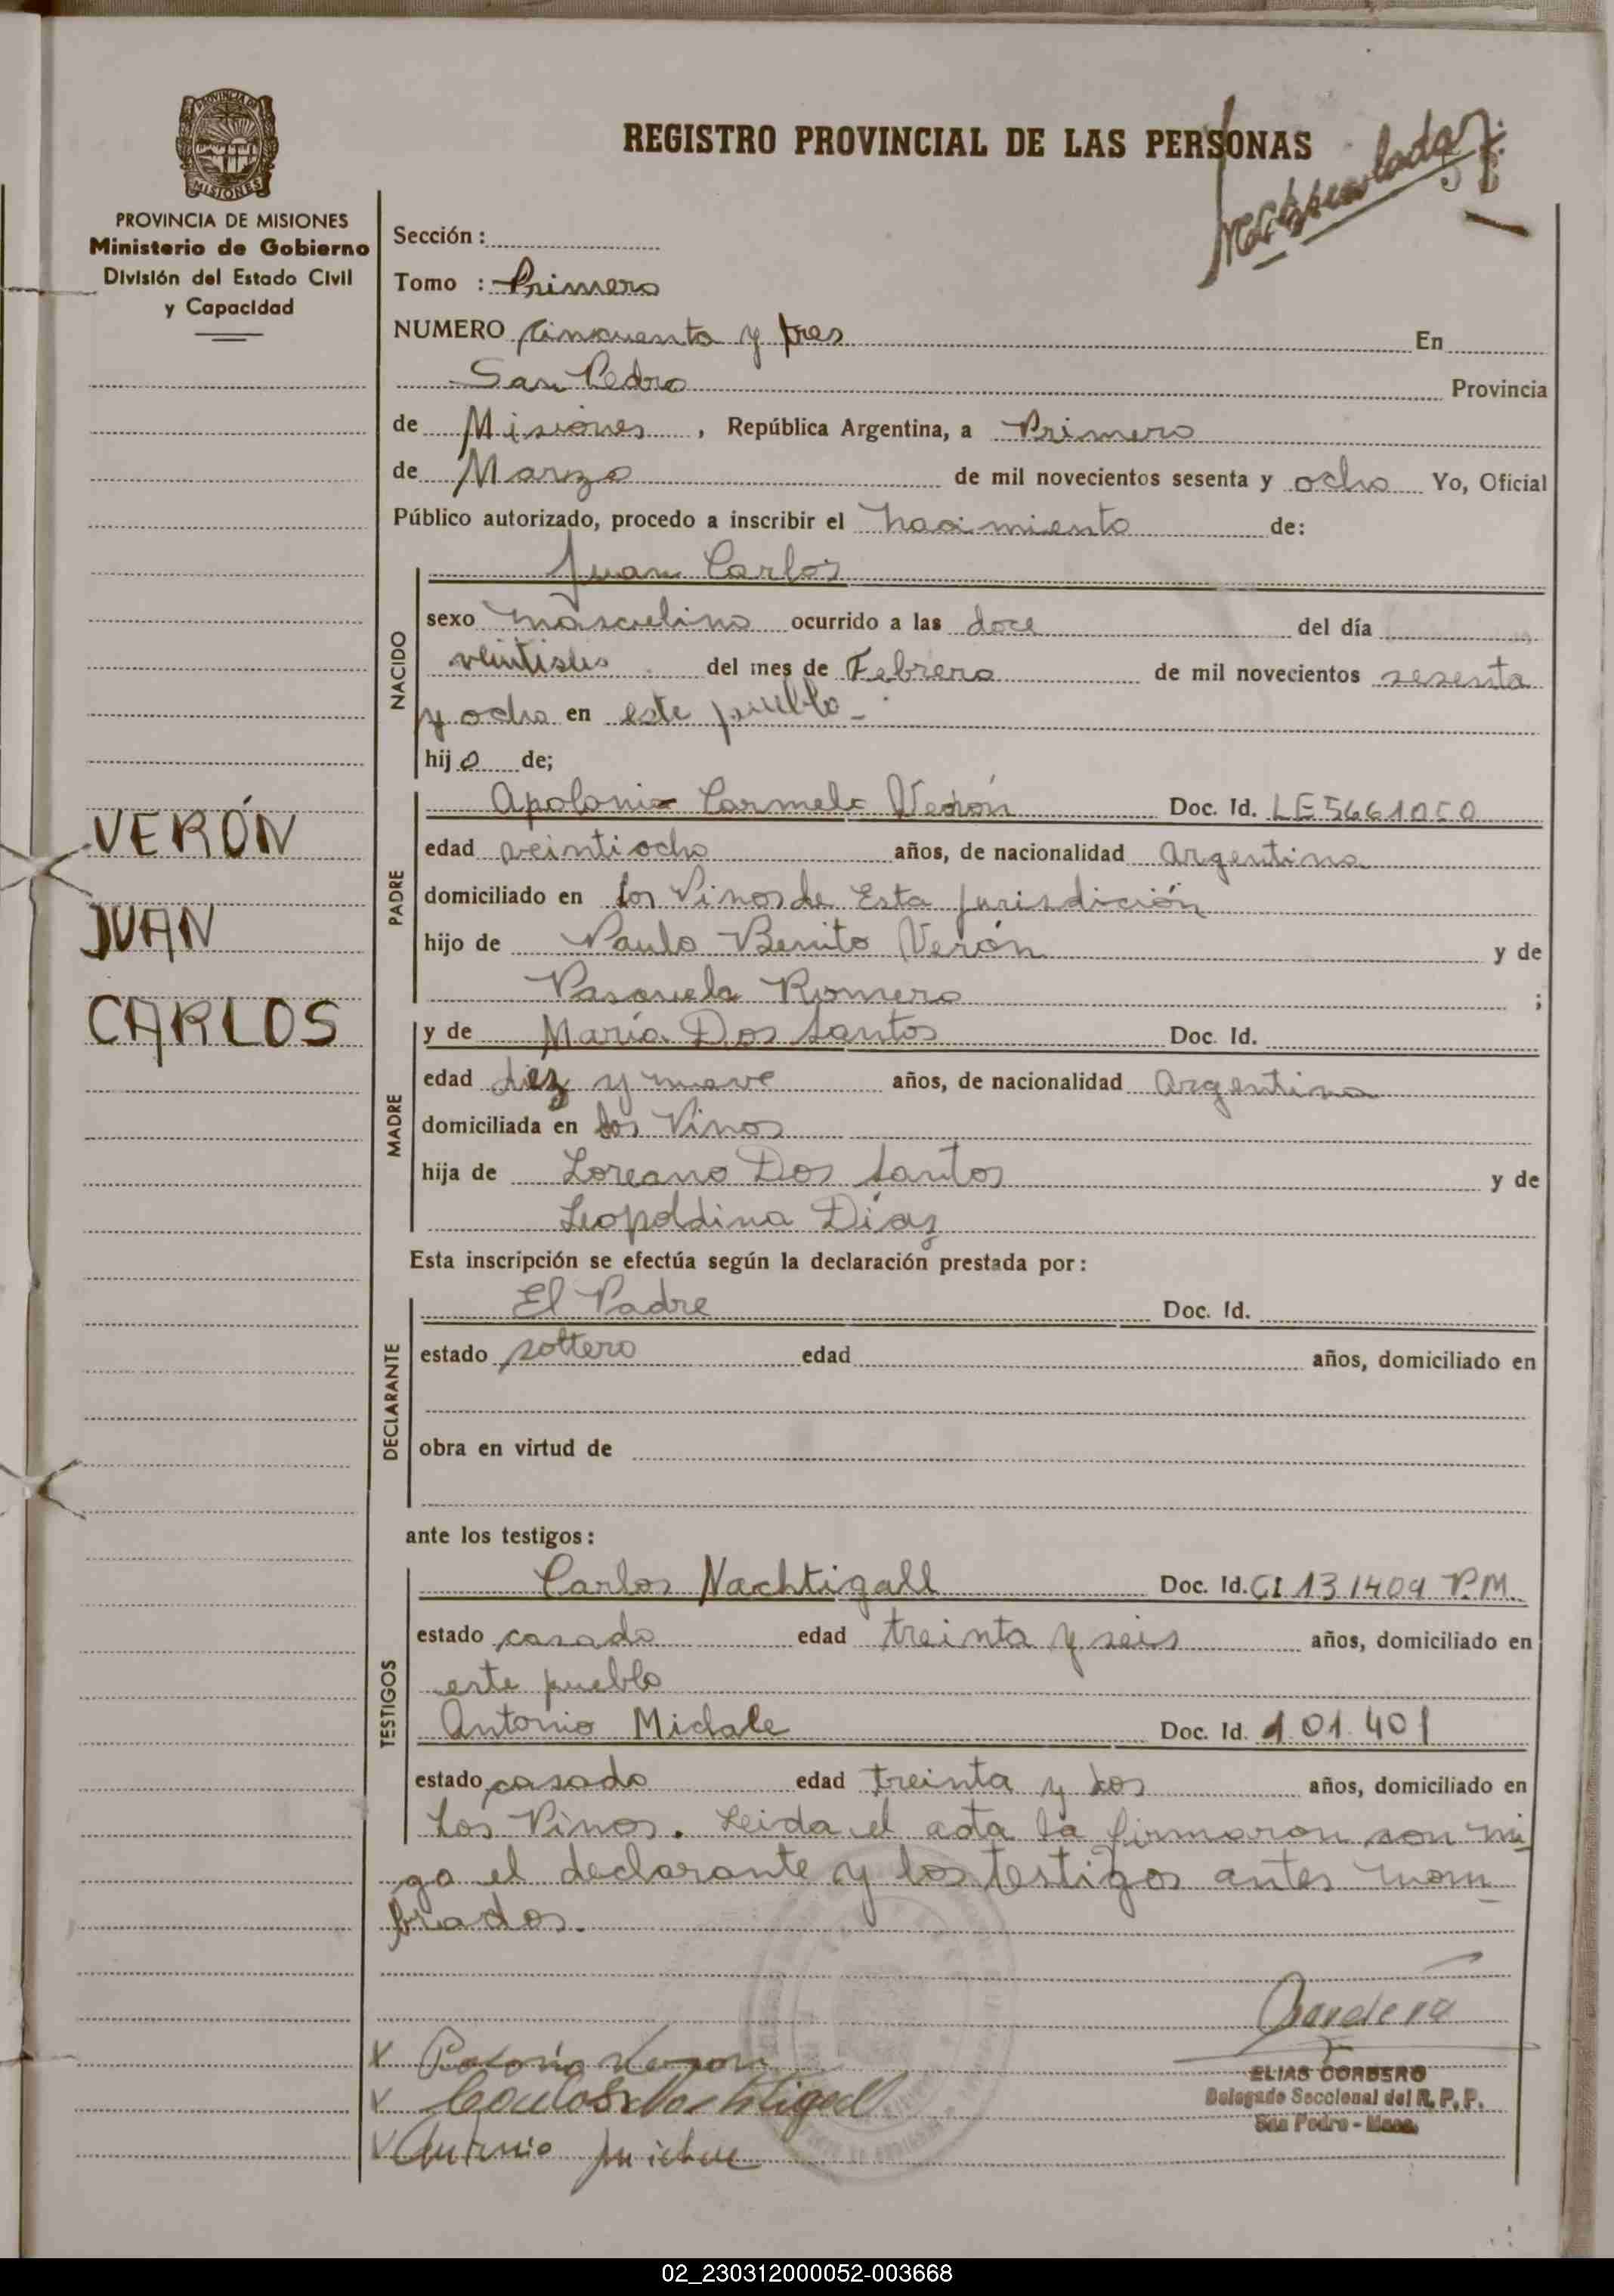 PROVINCIA DE MISIONES
MISIONES
PROVINCIA DE MISIONES
Ministerio de Gobierno
División del Estado Civil
y Capacidad
REGISTRO PROVINCIAL DE LAS PERSONAS
Sección :
Tomo : Primero
NUMERO Cincuenta y tres En
San Pedro Provincia
de Misiones , República Argentina, a Primero
de Marzo de mil novecientos sesenta y ocho Yo, Oficial
Público autorizado, procedo a inscribir el nacimiento de:
Juan Carlos
NACIDO
sexo masculino ocurrido a las doce del día
veintiseis del mes de Febrero de mil novecientos sesenta
y ocho en este pueblo -
hijo de;
VERÓN
JUAN
CARLOS
PADRE
Apolonio Carmelo Verón Doc. Id. LE 5661050
edad veintiocho años, de nacionalidad argentina
domiciliado en los Pinos de Esta jurisdición
hijo de Paulo Benito Verón y de
Pascuela Romero ;
MADRE
y de María Dos Santos Doc. Id.
edad diez y nueve años, de nacionalidad argentina
domiciliada en los Pinos
hija de Loreano Dos Santos y de
Leopoldina Díaz
Esta inscripción se efectúa según la declaración prestada por:
DECLARANTE
El Padre Doc. Id.
estado soltero edad años, domiciliado en
obra en virtud de
ante los testigos:
TESTIGOS
Carlos Nachtigall Doc. Id. CI 131409 P.M.
estado casado edad treinta y seis años, domiciliado en
este pueblo
Antonio Michale Doc. Id. 101.401
estado casado edad treinta y dos años, domiciliado en
Los Pinos. Leida el acta la firmaron con mi-
go el declarante y los testigos antes nom-
brados.
ELIAS CORDERO
Delegado Seccional del R. P. P.
San Pedro - Mnes.
02_230312000052-003668